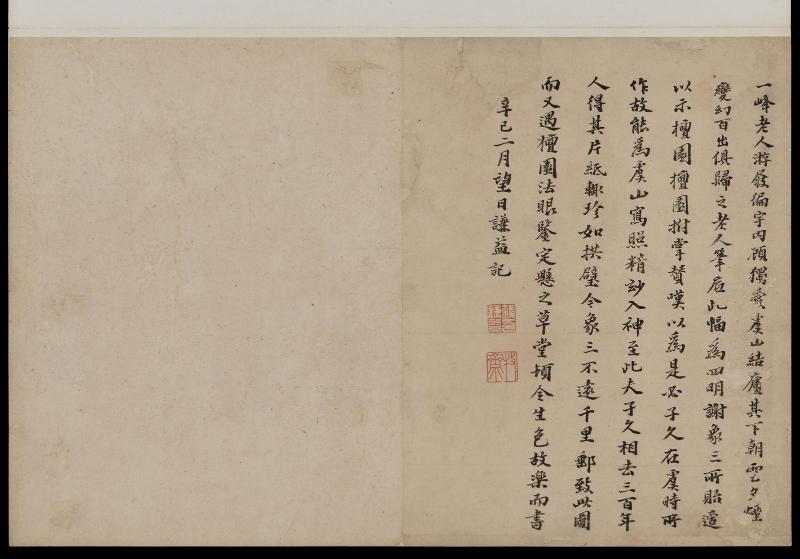 一峰老人游屐徧宇內顧獨愛虞山結廬其下朝雲夕煙
變幻百出俱歸之老人筆底此幅為四明謝象三所貽適
以示檀園檀園拊掌贊嘆以為是必子久在虞時所
作故能為虞山寫照精妙入神至此夫子久相去三百年
人得其片紙輙珍如拱璧今象三不遠千里郵致此圖
而又遇檀園法眼鑒定懸之草堂頓令生色故樂而書
辛巳二月望日謙益記